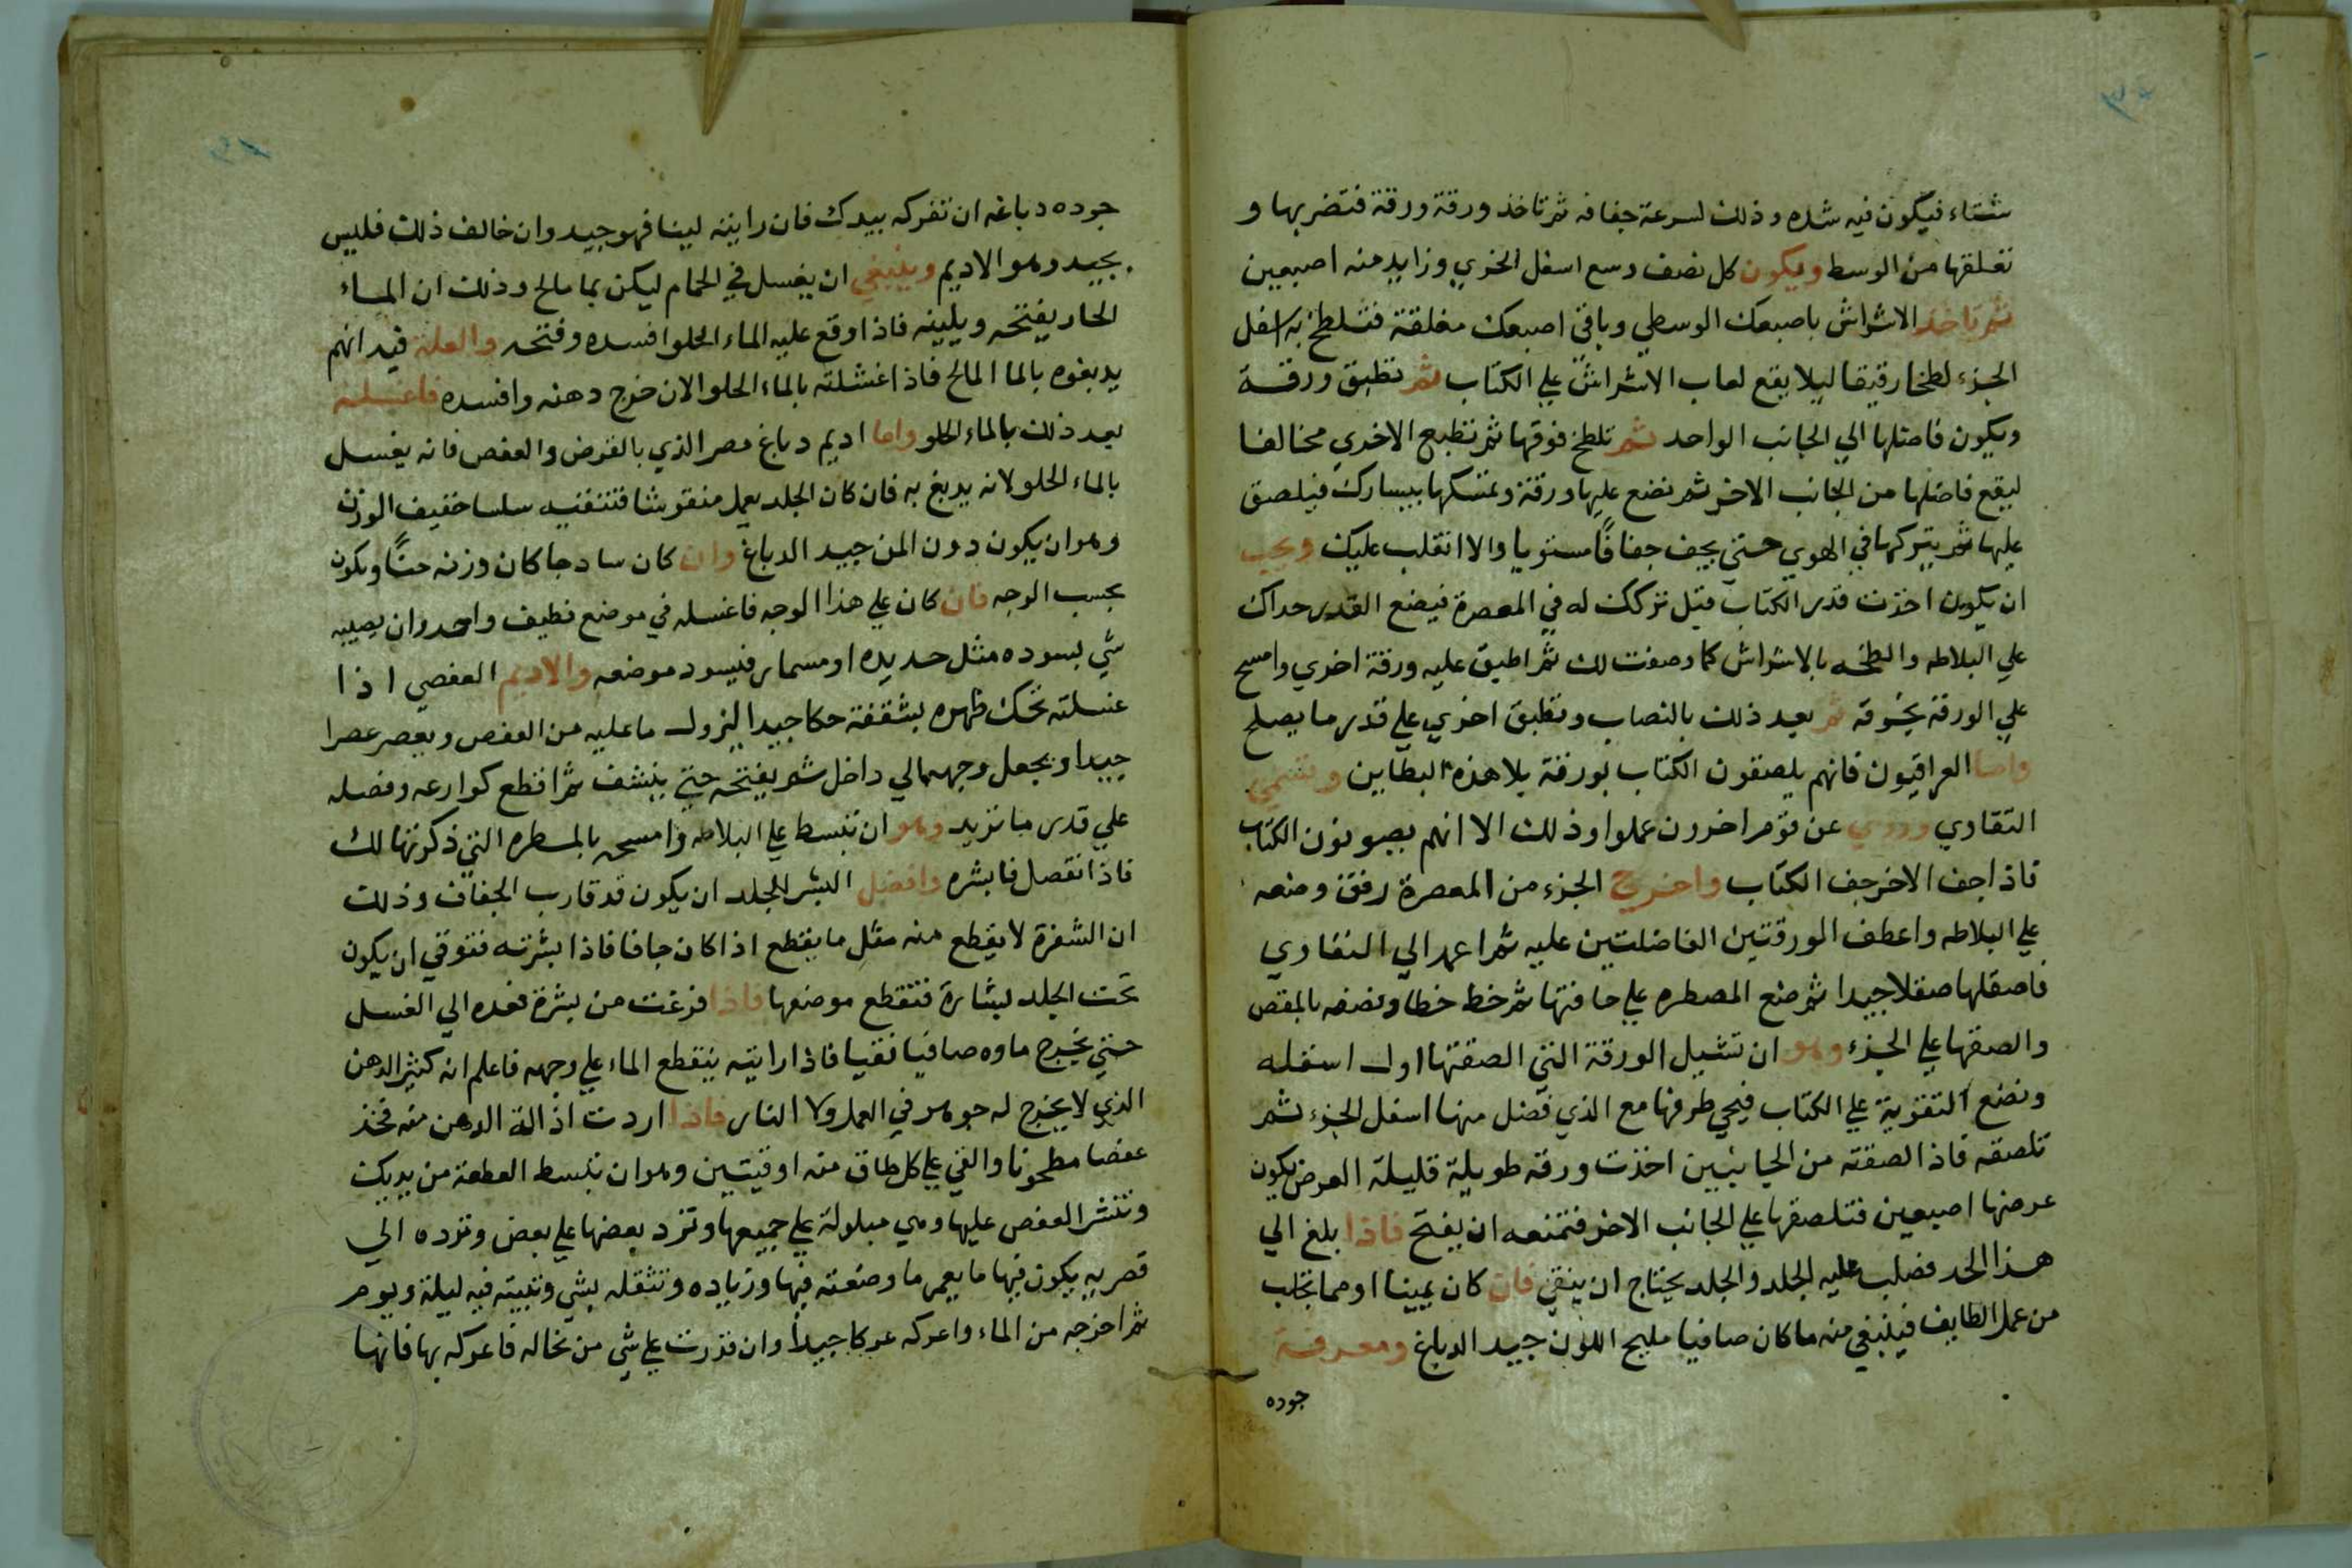 شتاء فيكون فيه شده وذلك لسرعة جفافه ثم تاخذ ورقة ورقة فتضربها و
تعلقها من الوسط ويكون كل نصف وسع اسفل الخري وزايد منه اصبعين
ثم تاخذ الاشراش باصبعك الوسطي وباقي اصبعك مغلقة فتلطخ به اسفل
الجزء لطخا رقيقا ليلا يقع لعاب الاشراش علي الكتاب ثم تطبق ورقة
ويكون فاضلها الي الجانب الواحد ثم تلطخ فوقها ثم تطبع الاخري مخالفا
ليقع فاضلها من الجانب الاخر ثم تضع عليها ورقة وتمسكها بيسارك فيلصق
عليها ثم يتركها في الهوي حتي يجف جفافًا مستويا والا انقلب عليك ويجب
ان يكون اخذت قدر الكتاب قبل تركك له في المعصرة فيضع القدر حداك
علي البلاطه والطخه بالاشراش كما وصفت لك ثم اطبق عليه ورقة اخري وامسح
علي الورقة بخرقة ثم بعد ذلك بالنصاب وتطبق اخري علي قدر ما يصلح
واما العراقيون فانهم يلصقون الكتاب بورقة بلا هذه البطاين وتسمي
التقاوي وروي عن قوم اخرون عملوا وذلك الا انهم يصونون الكتاب
فاذا جف الاخر جف الكتاب واخرج الجزء من المعصرة رفق وضعه
علي البلاطه واعطف الورقتين الفاضلتين عليه ثم اعمد الي التقاوي
فاصقلها صقلا جيدا ثم ضع المصطره علي حافتها ثم خط خطا ونصفه بالمقص
والصقها علي الجزء وهو ان تشيل الورقة التي الصقتها اول اسفله
وتضع التقوية علي الكتاب فيجي طرفها مع الذي فضل منها اسفل الجزء ثم
تلصقه فاذا لصقته من الجانبين اخذت ورقة طويلة قليلة العرض يكون
عرضها اصبعين فتلصقها علي الجانب الاخر فتمنعه ان يفتح فاذا بلغ الي
هذا الحد فصلب عليه الجلد والجلد يحتاج ان ينقي فان كان يمينا او مما يجلب
من عمل الطايف فينبغي منه ما كان صافيا مليح اللون جيد الدباغ ومعرفة
جوده
جوده دباغه ان تفركه بيدك فان رايته لينا فهو جيد وان خالف ذلك فليس
بجيد وهو الاديم وينبغي ان يغسل في الحمام ليكن بما مالح وذلك ان الماء
الحار يفتحه ويلينه فاذا وقع عليه الماء الحلو افسده وفتحه والعلة فيه انهم
يدبغوه بالما المالح فاذا غسلته بالماء الحلو الان خرج دهنه وافسده فاغسله
بعد ذلك بالماء الحلو واما اديم دباغ مصر الذي بالقرض والعفص فانه يغسل
بالماء الحلو لانه يدبغ به فان كان الجلد يعمل منقوشا فتنقيه سلسا خفيف الوزن
وهو ان يكون دون المن جيد الدباغ وان كان سادجا كان وزنه منًا ويكون
بحسب الوجه فان كان علي هذا الوجه فاغسله في موضع نظيف واحد وان يصيبه
شي يسوده مثل حديده او مسمار فيسود موضعه والاديم العفصي اذا
غسلته تحك ظهره بشقفة حكا جيدا لينزول ما عليه من العفص ويعصر عصرا
جيدا ويجعل وجهه الي داخل ثم يفتحه حتي ينشف ثم اقطع كوارعه وفصله
علي قدر ما تريد وهو ان تبسط علي البلاطه وامسحه بالمسطره التي ذكرتها لك
فاذا انفصل فابشره وافضل البشر للجلد ان يكون قد قارب الجفاف وذلك
ان الشفرة لا يقطع منه مثل ما يقطع اذا كان جافا فاذا بشرته فتوقي ان يكون
تحت الجلد بشارة فتقطع موضعها فاذا فرغت من بشره فعده الي الغسل
حتي يخرج ماوه صافيا نقيا فاذا رايته ينقطع الماء علي وجهه فاعلم انه كثير الدهن
الذي لا يخرج له جوهر في العمل ولا النار فاذا اردت اذالة الدهن منه فخذ
عفصا مطحونا والقي علي كل طاق منه اوقيتين وهو ان تبسط القطعة من يديك
وتنثر العفص عليها وهي مبلولة علي جميعها وترد بعضها علي بعض وترده الي
قصريه يكون فيها ما يغمر ما وضعته فيها وزياده وتثقله بشي وتبيته فيه ليلة ويوم
ثم اخرجه من الماء واعركه عركا جيداً وان قدرت علي شي من نخاله فاعركه بها فانها